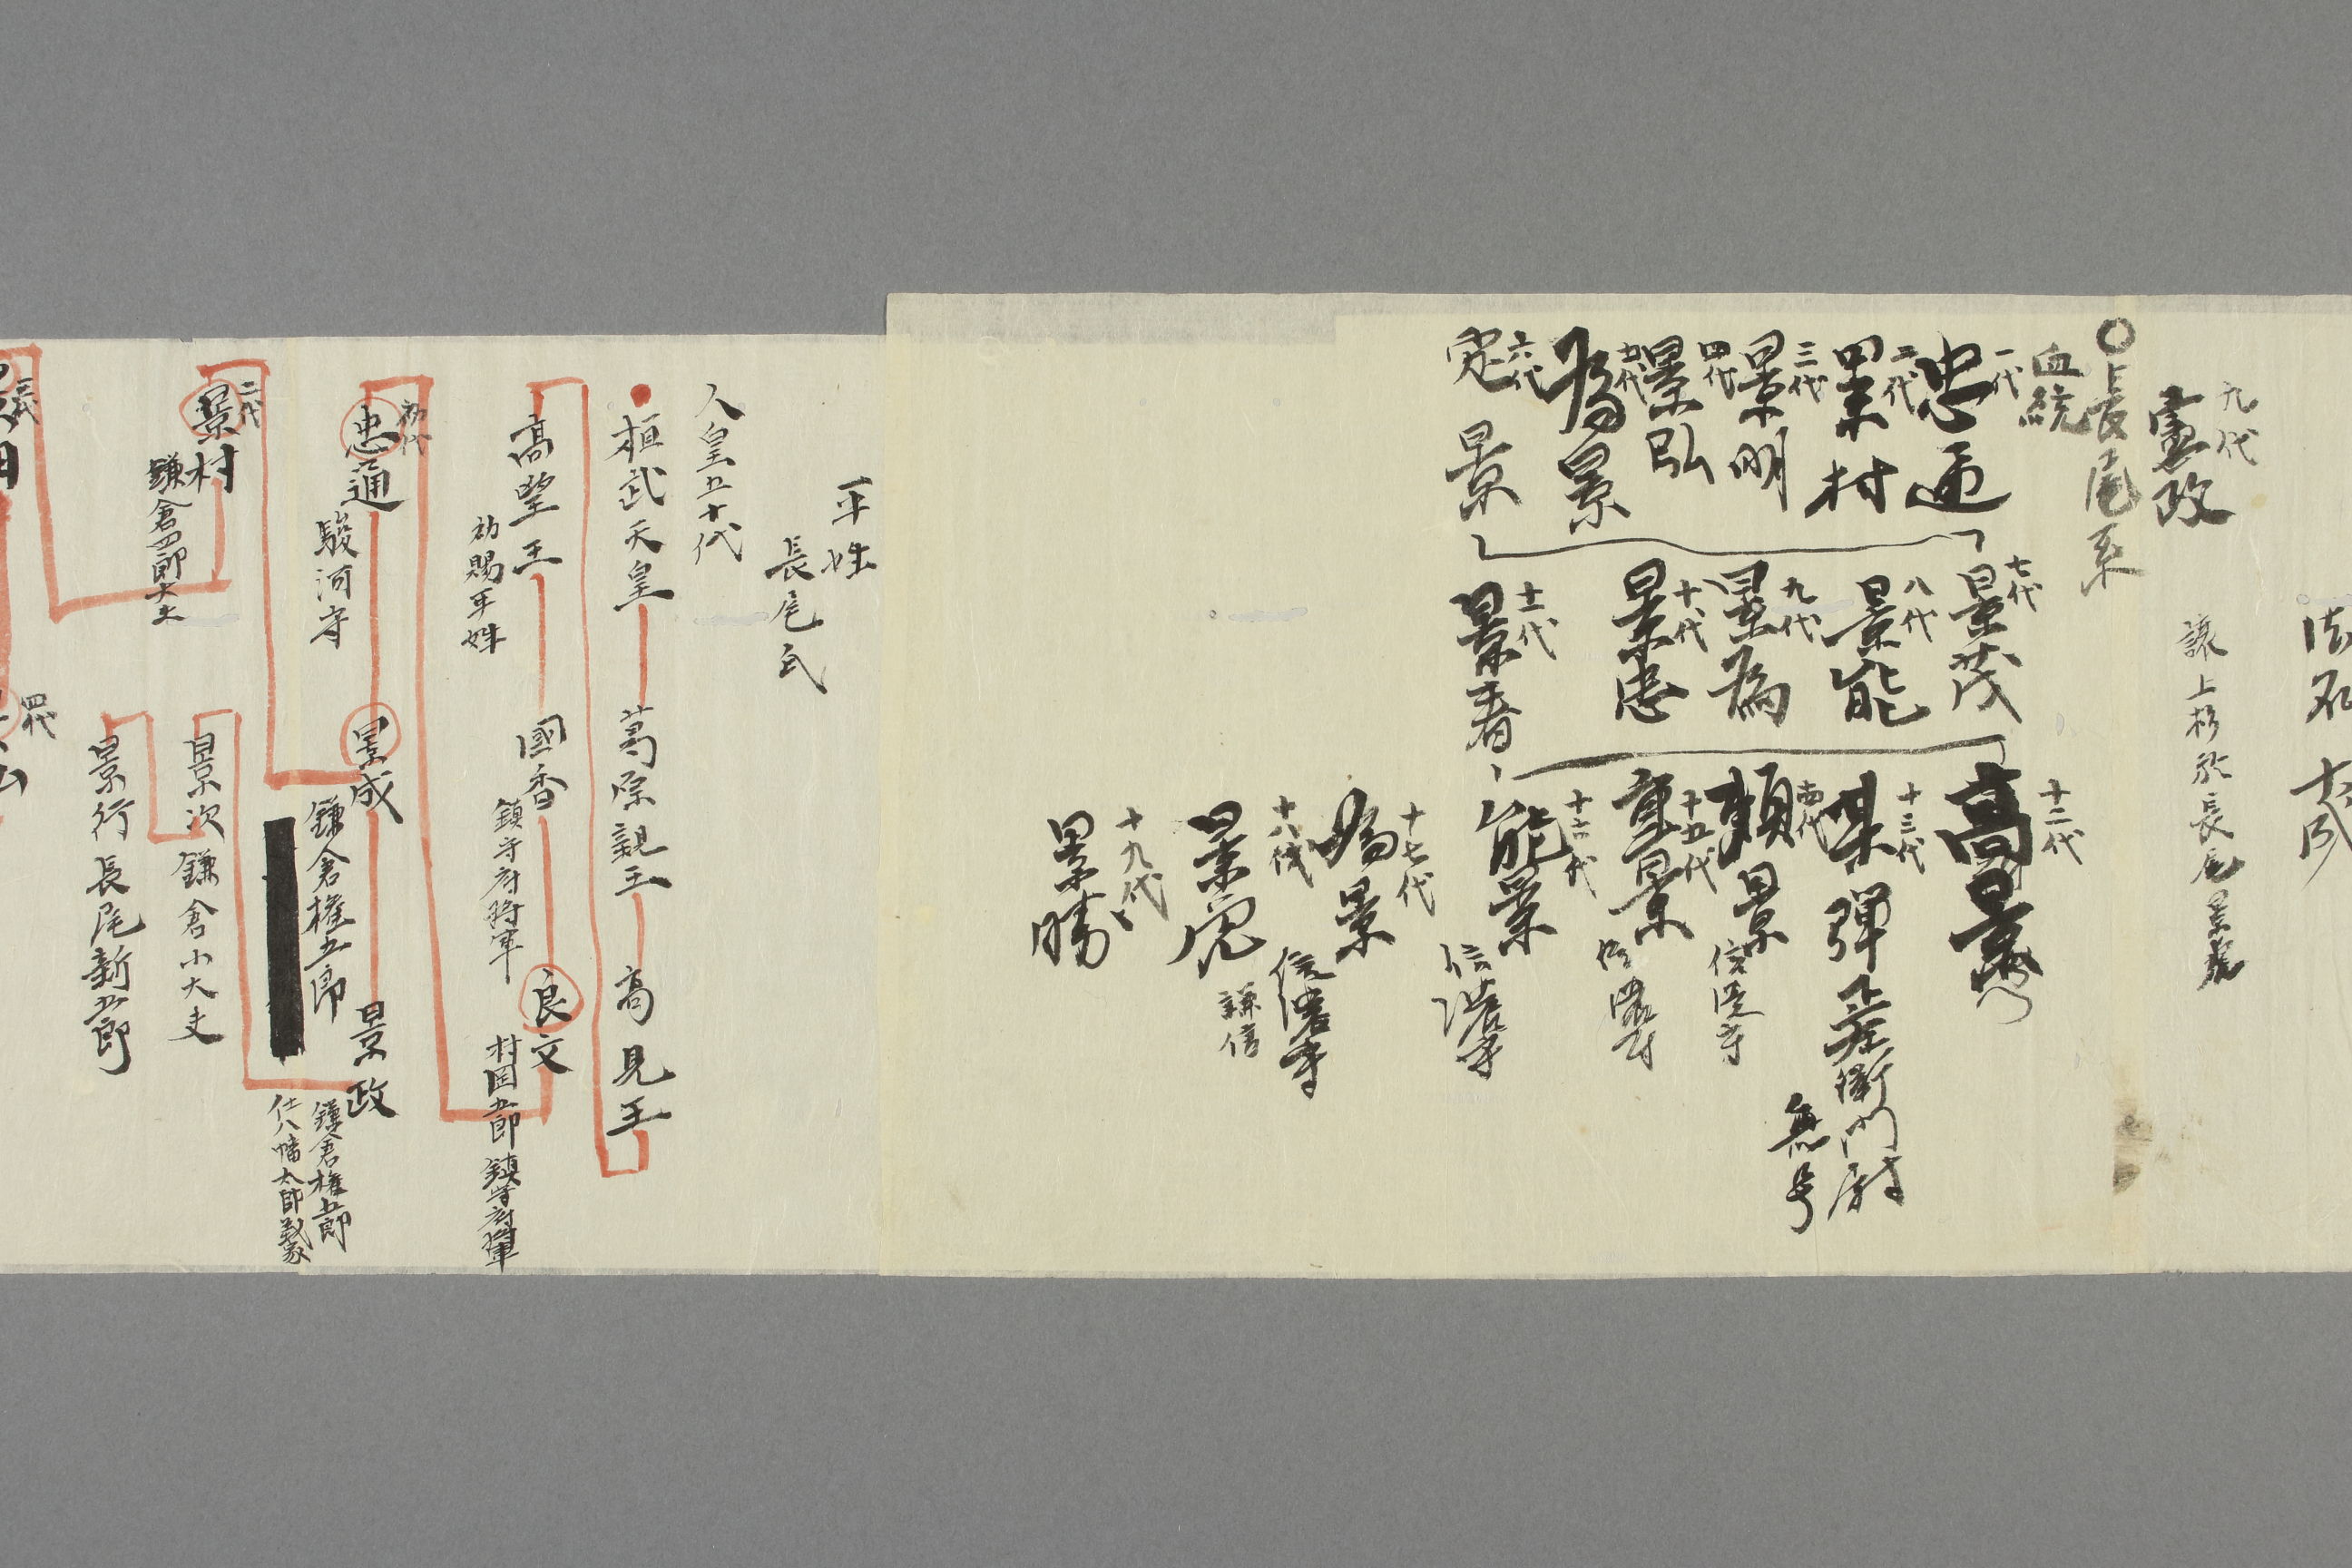 法名
九代
憲政
譲上杉於長尾景虎
○長尾系
血統
一代
忠通
二代
景村
三代
景明
四代
景弘
五代
為景
六代
定景
七代
景茂
八代
景能
九代
景為
十代
景忠
十一代
景春
十二代
高景
十三代
某弾正左衛門尉
無号
十四代
頼景
信濃守
十五代
重景
信濃守
十六代
能景
信濃守
十七代
為景
信濃守
十八代
景虎
謙信
十九代
景勝
平姓
長尾氏
人皇五十代
桓武天皇
葛原親王
高見王
高望王
初賜平姓
國香
鎮守府将軍
良文
村岡五郎 鎮守府将軍
初代
忠通
駿河守
景成
鎌倉権五郎
景政
鎌倉権五郎
仕八幡太郎義家
二代
景村
鎌倉四郎大夫
景次 鎌倉小大夫
景行 長尾新五郎
三代
四代